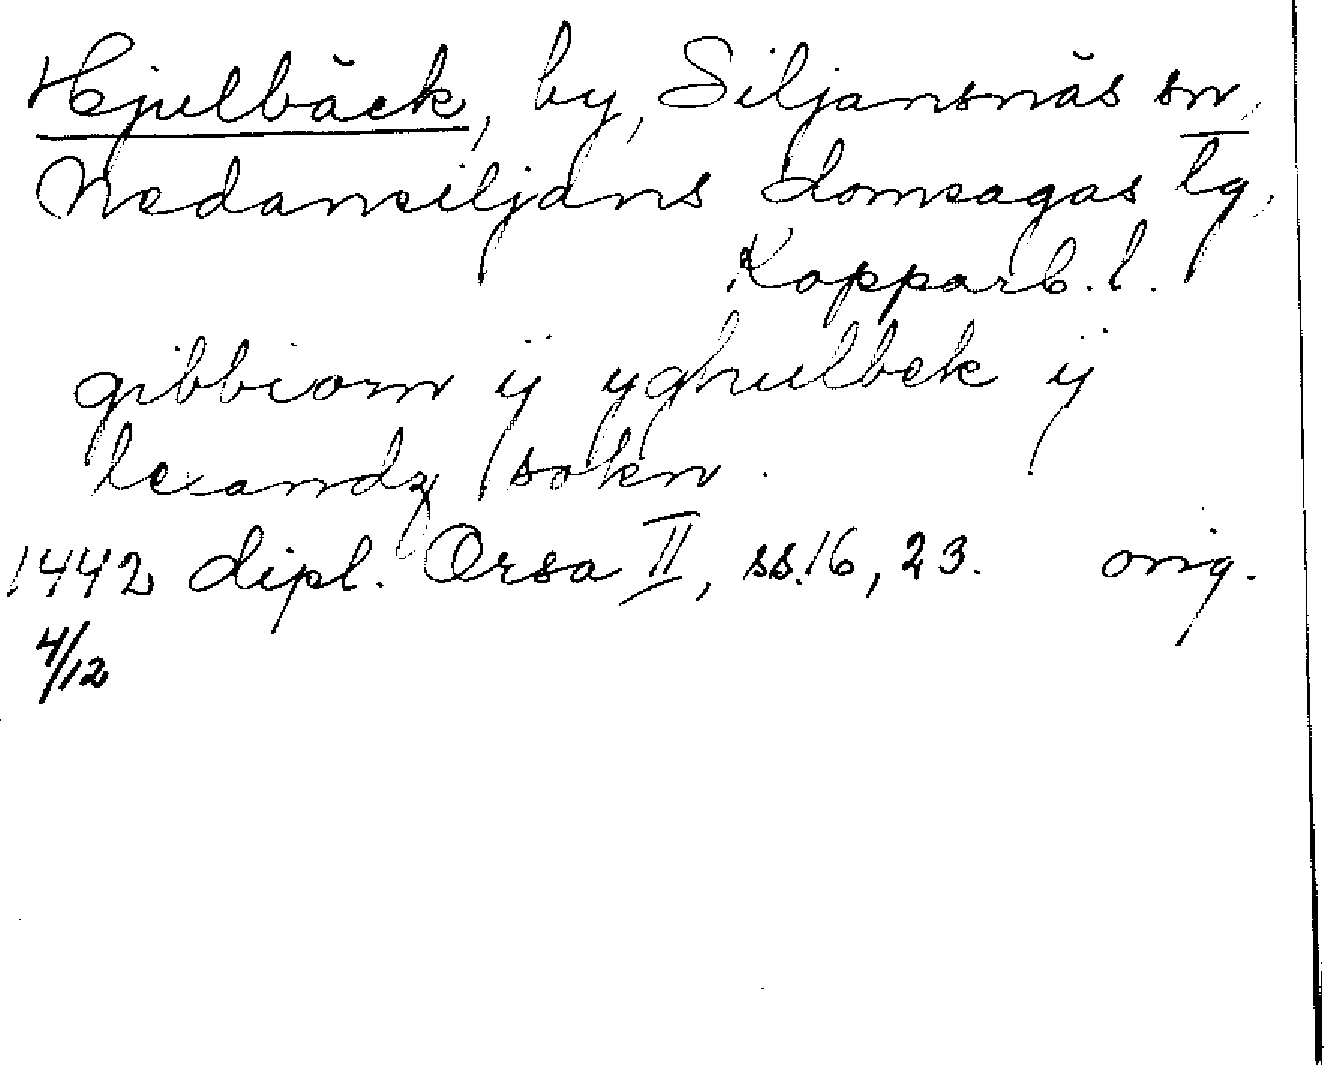 Hjulbäck, by, Siljansnäs sn,
Nedansiljans domsagas tg,
Kopparb. l.
gibbiorn ij yghulbek ij
lexandz sokn.
1442 dipl. Orsa II, ss. 16, 23. orig.
4/12